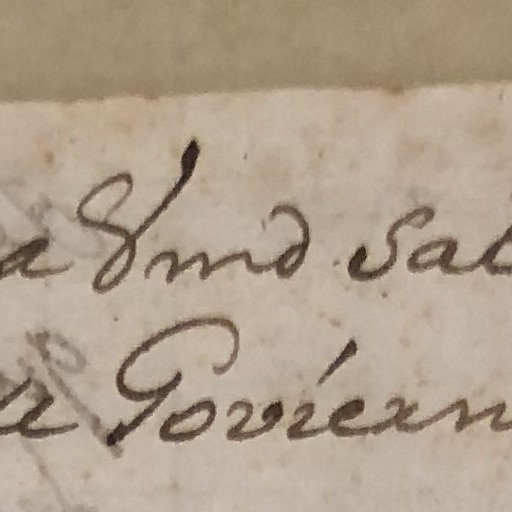 a Vmd Sal
u Govíern